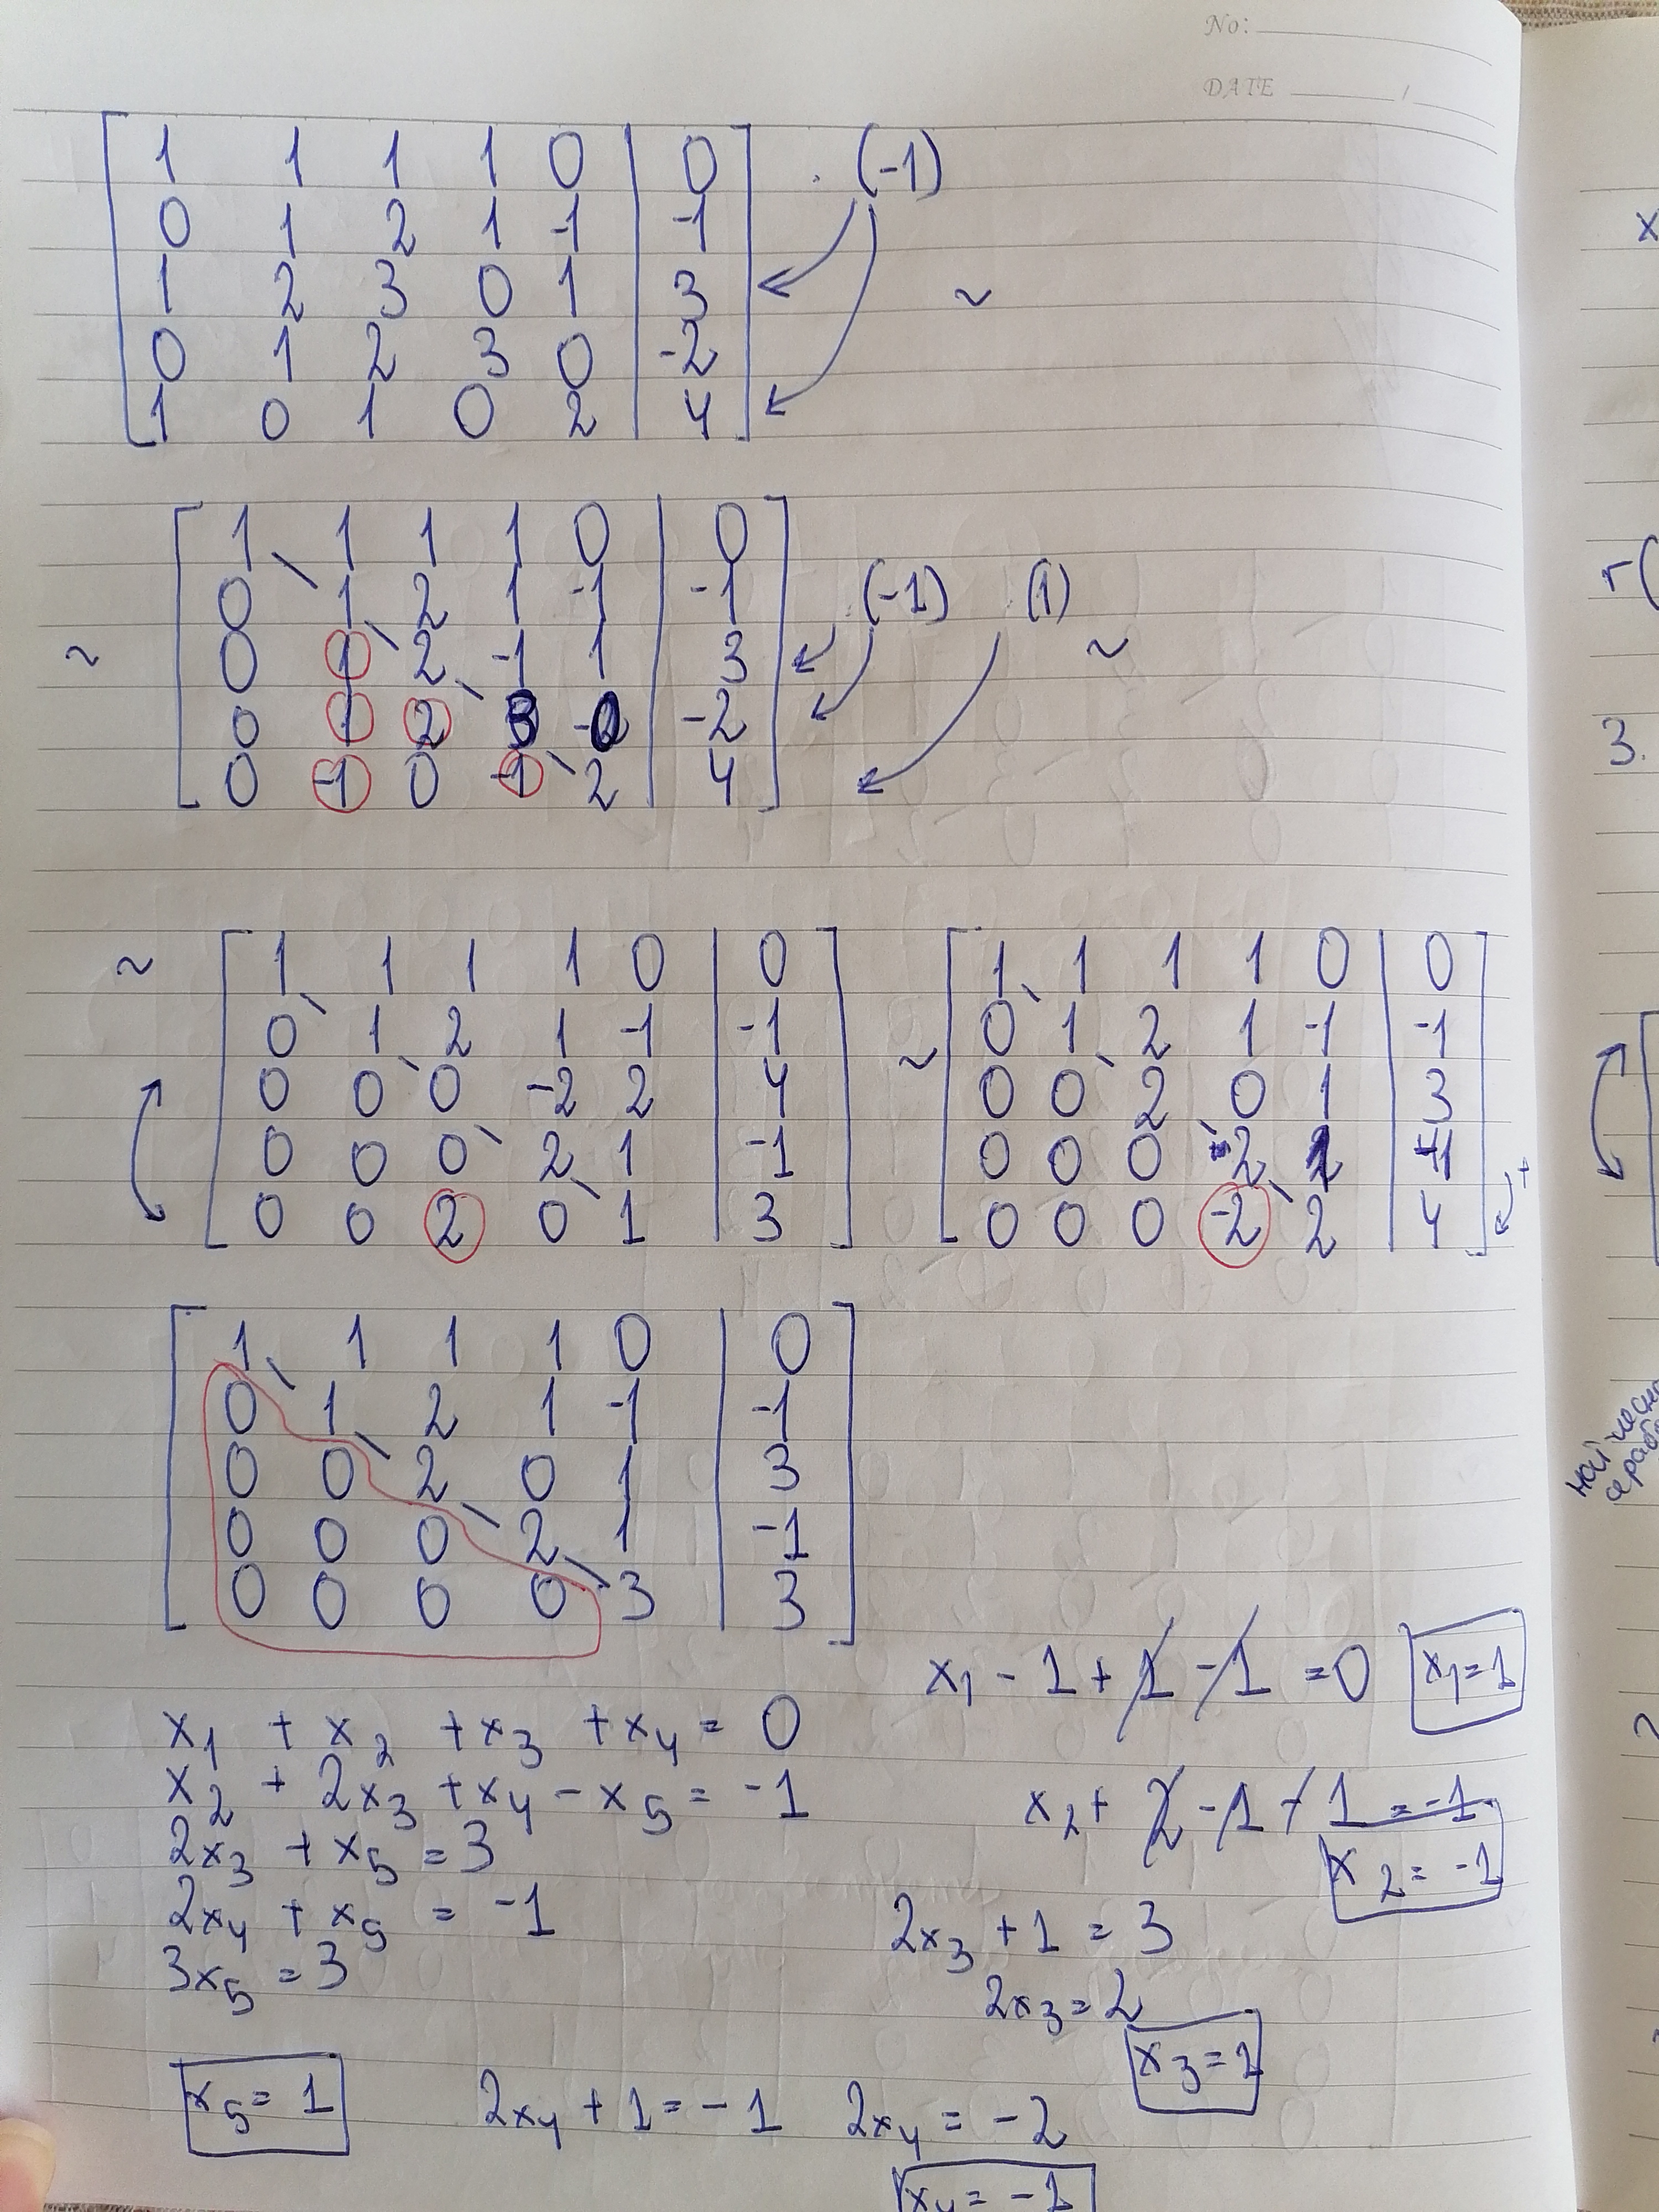 No:
DATE /
1 1 1 1 0 | 0 · (-1)
0 1 2 1 -1 | -1
1 2 3 0 1 | 3 ~
0 1 2 3 0 | -2
1 0 1 0 2 | 4
1 1 1 1 0 | 0
0 1 2 1 -1 | -1 (-1) (1)
~ 0 1 2 -1 1 | 3 ~
0 1 2 3 0 | -2
0 -1 0 -1 2 | 4
~ 1 1 1 1 0 | 0
0 1 2 1 -1 | -1
0 0 0 -2 2 | 4
0 0 0 2 1 | -1
0 0 2 0 1 | 3
~ 1 1 1 1 0 | 0
0 1 2 1 -1 | -1
0 0 2 0 1 | 3
0 0 0 2 1 | -1 +
0 0 0 -2 2 | 4
1 1 1 1 0 | 0
0 1 2 1 -1 | -1
0 0 2 0 1 | 3
0 0 0 2 1 | -1
0 0 0 0 3 | 3
x1 + x2 + x3 + x4 = 0
x2 + 2x3 + x4 - x5 = -1
2x3 + x5 = 3
2x4 + x5 = -1
3x5 = 3
x1 - 1 + 1 - 1 = 0 x1 = 1
x2 + 2 - 1 - 1 = -1
x2 = -1
2x3 + 1 = 3
2x3 = 2
x3 = 1
x5 = 1 2x4 + 1 = -1 2x4 = -2
x4 = -1
x
r(
3.